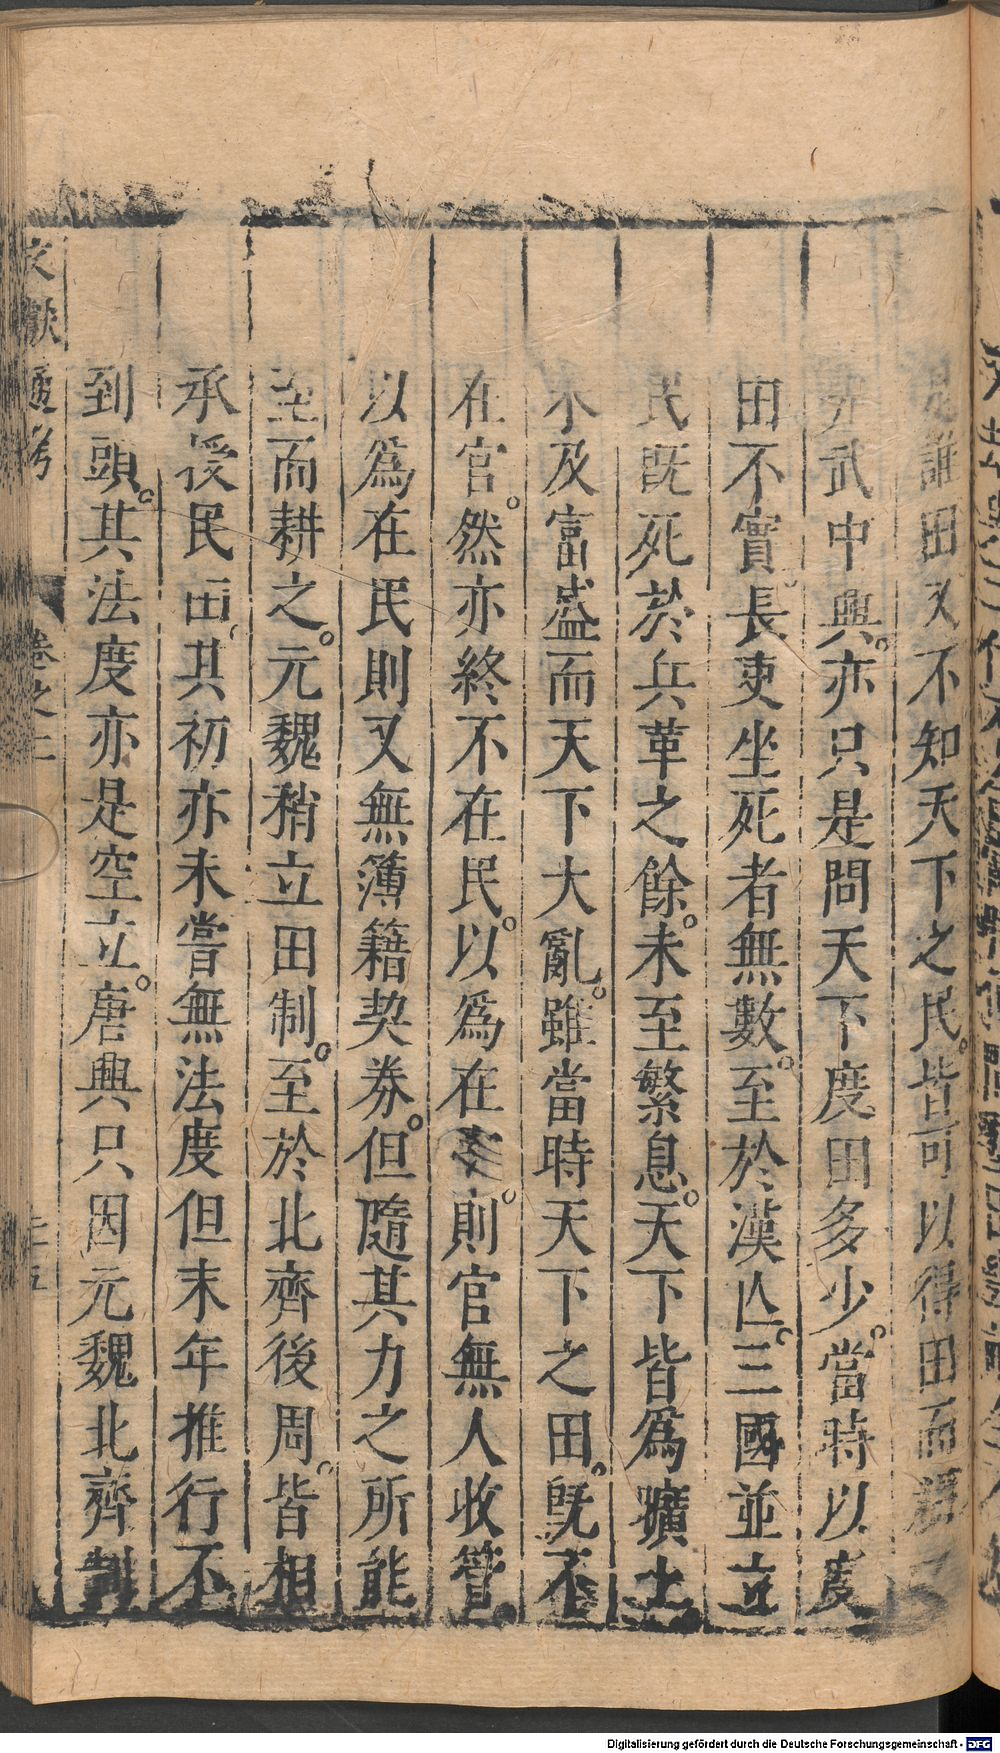 是誰田又不知天下之民皆可以得田而耕
光武中興亦只是問天下度田多少當時以度
田不實長吏坐死者無數至於漢亾三國並立
民既死於兵革之餘未至繁息天下皆爲曠土
未及富盛而天下大亂雖當時天下之田既不
在官然亦終不在民以爲在 則官無人收管
以爲在民則又無簿籍契券但隨其力之所能
至而耕之元魏稍立田制至於北齊後周皆相
承授民田其初亦未嘗無法度但末年推行不
到頭其法度亦是空立唐興只因元魏北齊制
文獻通考 卷之二
Digitalisierung gefördert durch die Deutsche Forschungsgemeinschaft - DFG